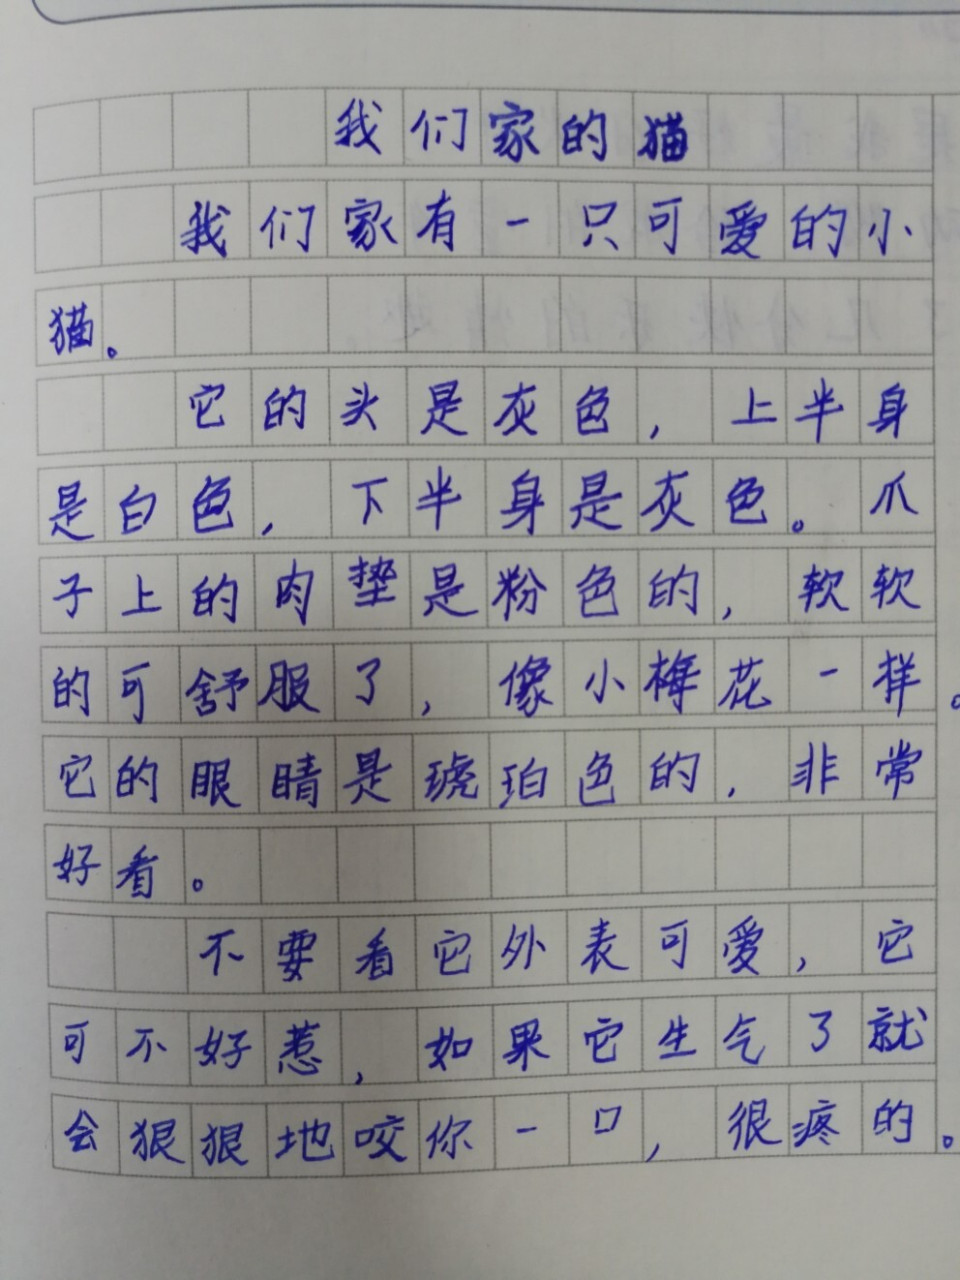 我们家的猫
我们家有一只可爱的小
猫。
它的头是灰色，上半身
是白色，下半身是灰色。爪
子上的肉垫是粉色的，软软
的可舒服了，像小梅花一样。
它的眼睛是琥珀色的，非常
好看。
不要看它外表可爱，它
可不好惹，如果它生气了就
会狠狠地咬你一口，很疼的。